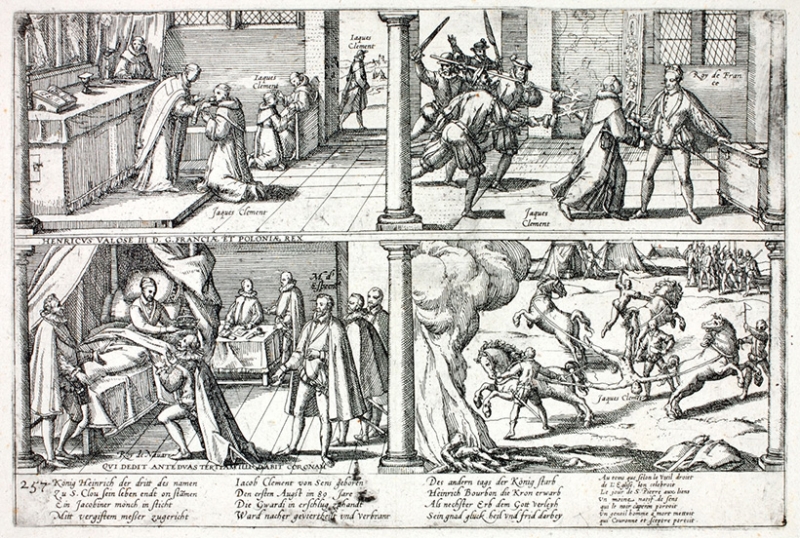 Jaques
Clement
Jaques
Clement
Jaques Clement
Roy de Fran
ce
Jaques
Clement
HENRICVS VALOSE III D. G. FRANCIÆ ET POLONIÆ REX
Roy de Navar
Jaques Clement
QVI DEDIT ANTE DVAS DABIT CORONAM
257
König Heinrich der dritt des namen
Zu S. Clou sein leben ende
Ein Jacobiner mönch in sticht
Mitt vergiftem messer zugericht
Iacob Clement von Sens geboren
Den ersten Augst im 89. Jare
Die Gwardi in erschlug
Ward nacher geviertheilt und verbrant
Des andern tags der König starb
Heinrich Bourbon die Kron erwarb
Als nechster Erb dem Gott verleyh
Sein gnad glück heil und frid darbey
Au temps qui selon le droict
de l'Eglise
Le jour de St Pierre aux liens
Un moine natif de sens
qui Couronne et sceptre perisit